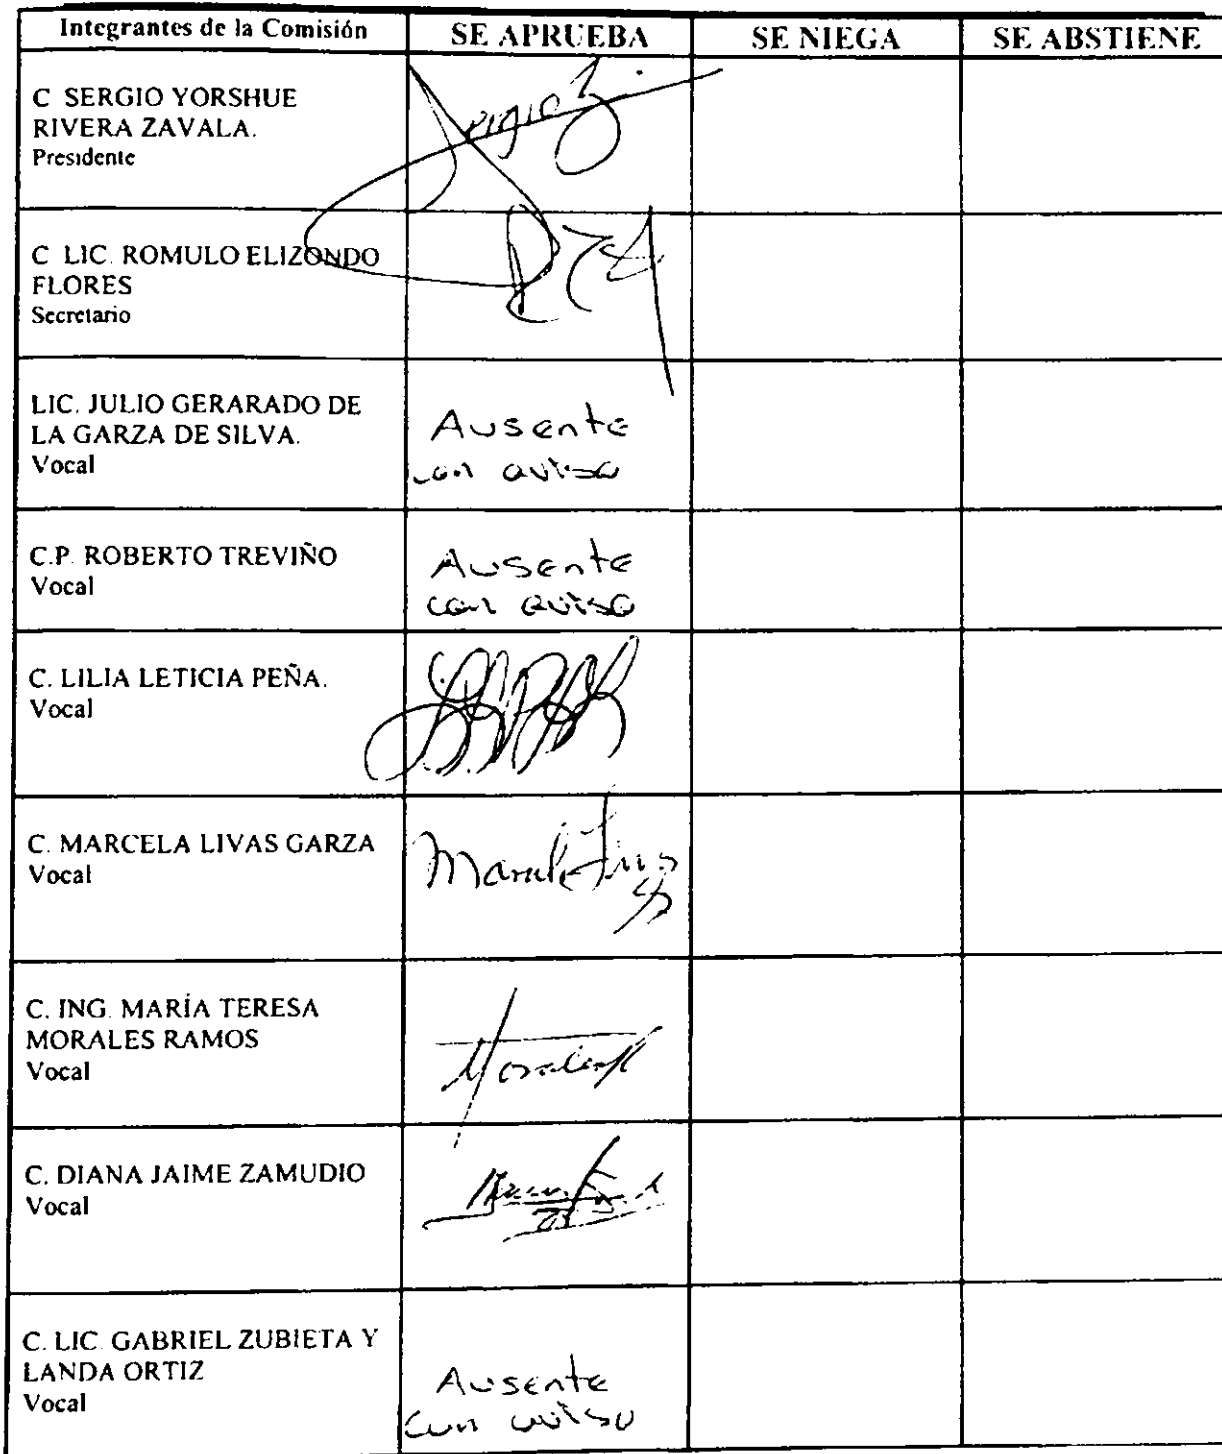 Integrantes de la Comisión SE APRUEBA SE NIEGA SE ABSTIENE
C SERGIO YORSHUE
RIVERA ZAVALA.
Presidente
Sergio
C LIC. ROMULO ELIZONDO
FLORES
Secretario
LIC. JULIO GERARADO DE
LA GARZA DE SILVA.
Vocal
Ausente
con aviso
C.P. ROBERTO TREVIÑO
Vocal
Ausente
con aviso
C. LILIA LETICIA PEÑA.
Vocal
C. MARCELA LIVAS GARZA
Vocal
C. ING. MARÍA TERESA
MORALES RAMOS
Vocal
C. DIANA JAIME ZAMUDIO
Vocal
C. LIC. GABRIEL ZUBIETA Y
LANDA ORTIZ
Vocal
Ausente
con aviso